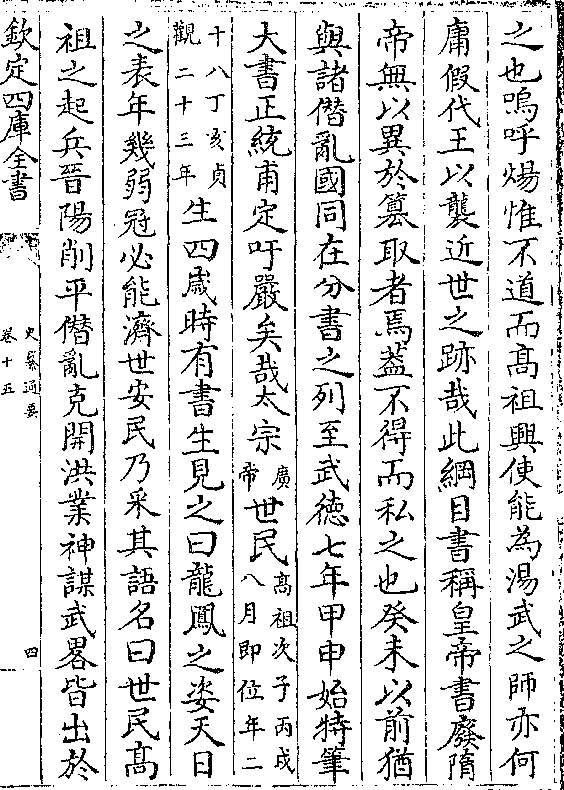 之也嗚呼煬惟不道而髙祖興使能為湯武之師亦何
庸假代王以襲近世之跡哉此綱目書稱皇帝書廢隋
帝無以異於簒取者焉葢不得而私之也癸未以前猶
與諸僭亂國同在分書之列至武徳七年甲申始特筆
大書正統甫定吁嚴矣哉太宗廣帝世民髙祖次子丙戌八月即位年二
十八丁亥貞觀二十三年生四歲時有書生見之曰龍鳳之姿天日
之表年幾弱冠必能濟世安民乃采其語名曰世民髙
祖之起兵晉陽削平僭亂克開洪業神謀武畧皆出於
欽定四庫全書
史纂通要
卷十五
四